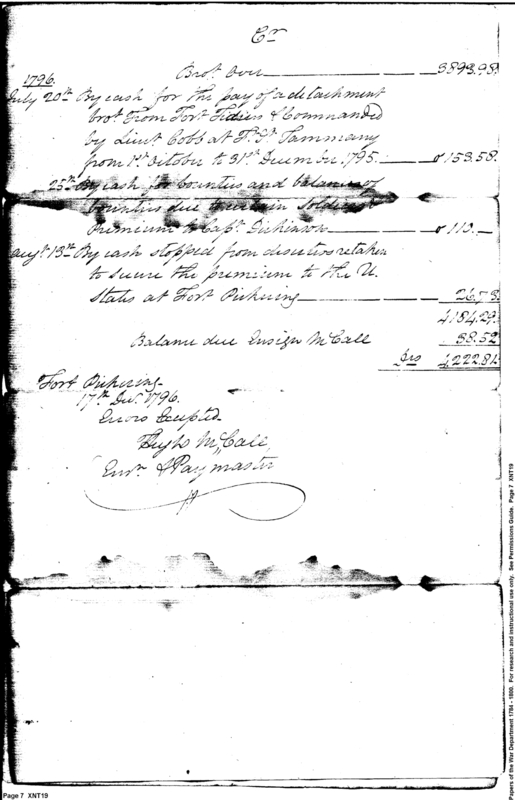 Cr
Brot. Over 3893.98
1796.
July 20th By cash for the pay of a detachment
brot. from Fort Fidius & Commanded
by Lieut Cobb at Ft. St. Tammany
from 1st. October to 31st. December 1795. 153.58.
25th By cash for bounties and balances of
bounties due to certain Soldiers &
Premium to Capt. Dickinson 110.
Augt. 13th By cash stopped from deserters retaken
to secure the premium to the U.
States at Fort Pickering 26.73
4184.29.
Balance due Ensign McCall 38.52
4,222.81.
Fort Pickering
17th Decr. 1796.
Errors Excepted
Hugh McCall
Ensn. & Paymaster
Page 7 XNT19
Papers of the War Department 1784 - 1800. For research and instructional use only. See Permissions Guide. Page 7 XNT19